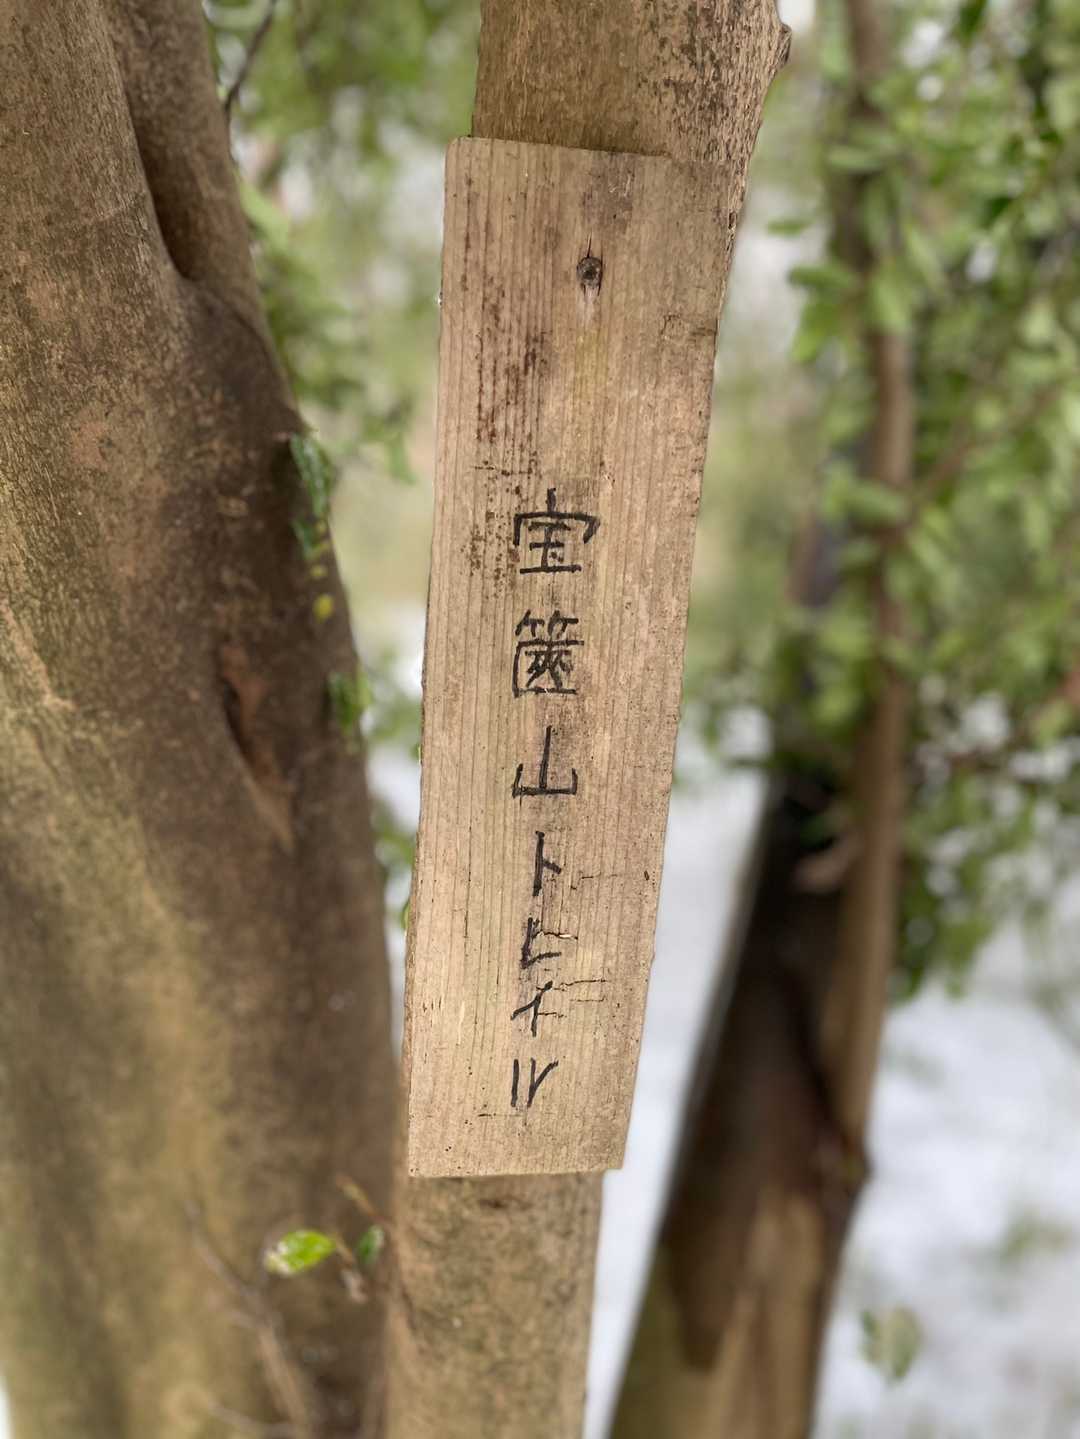 宝篋山トヒイル